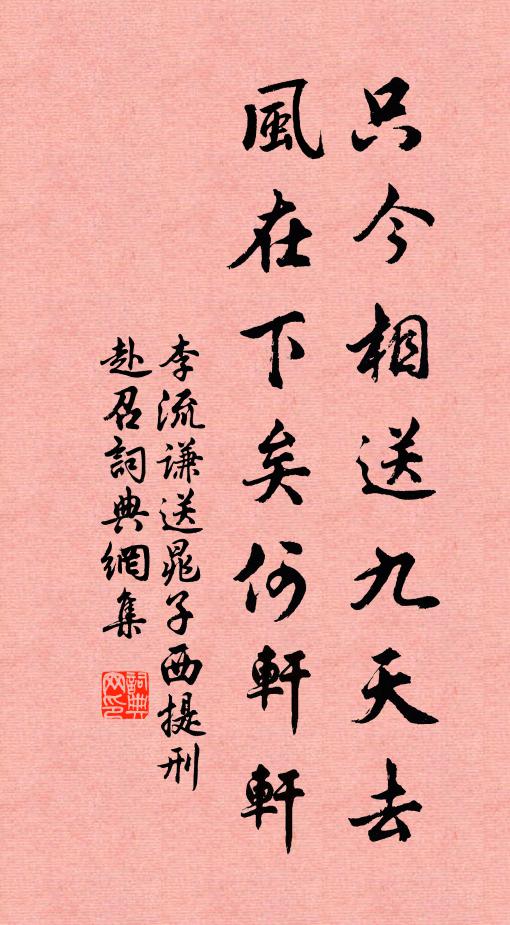 只今相送九天去
風在下矣何軒軒
李流謙送晁子西提刑
赴召詞典網集
詞典
网印